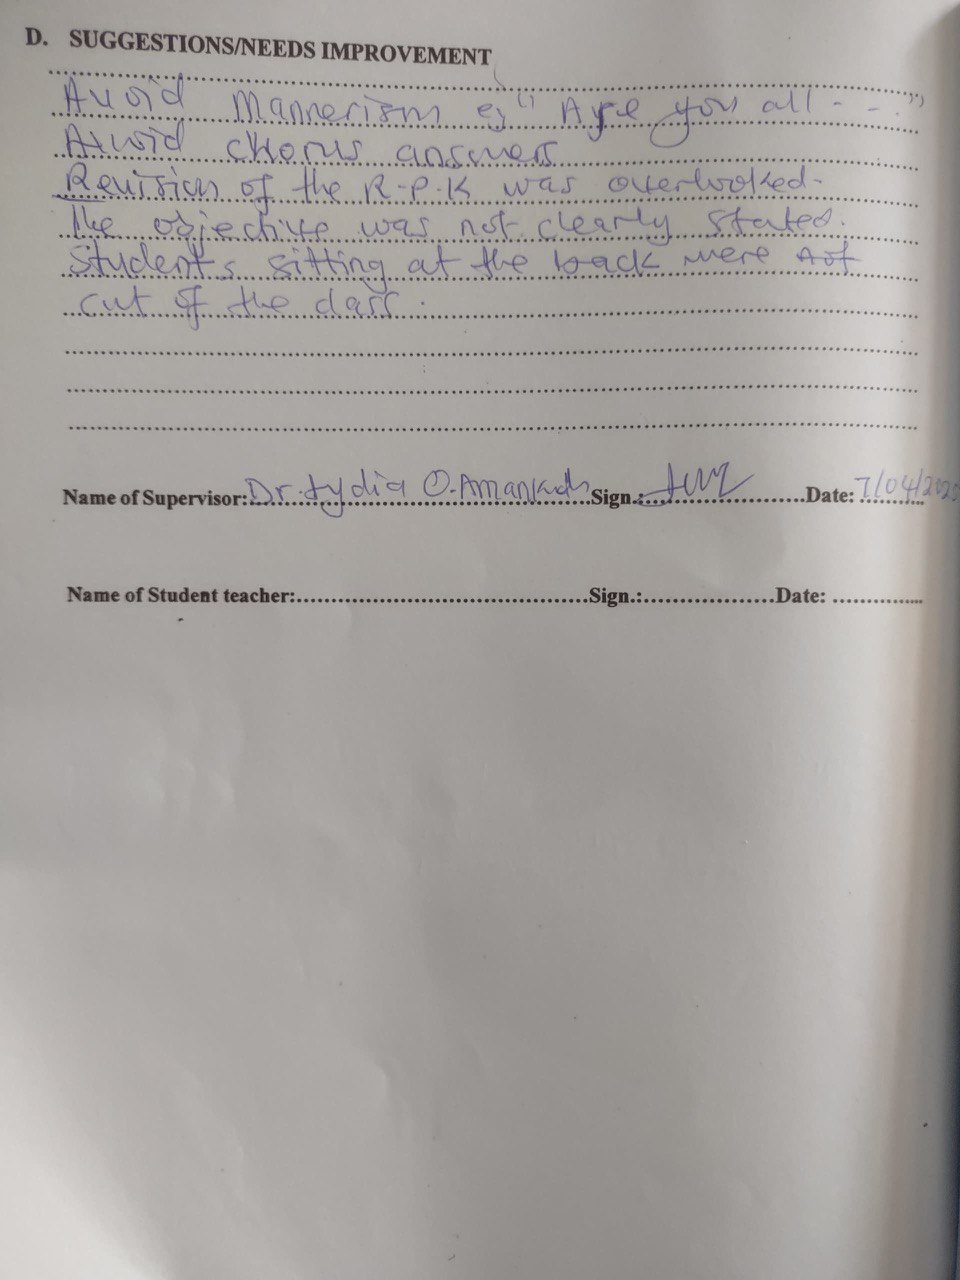 D. SUGGESTIONS/NEEDS IMPROVEMENT
Avoid Mannerism eg " Are you all - - "
Avoid chorus answers
Revision of the R-P-K was overlooked.
The objective was not clearly stated.
Students sitting at the back were not
cut of the class.
Name of Supervisor: Dr. Lydia O. Amankwah Sign.: Date: 7/04/202
Name of Student teacher: Sign.: Date: